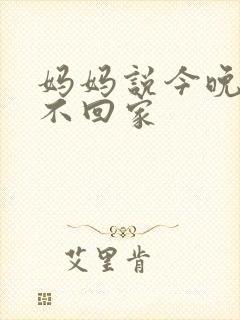 妈妈説今晚
不回家
艾里肯